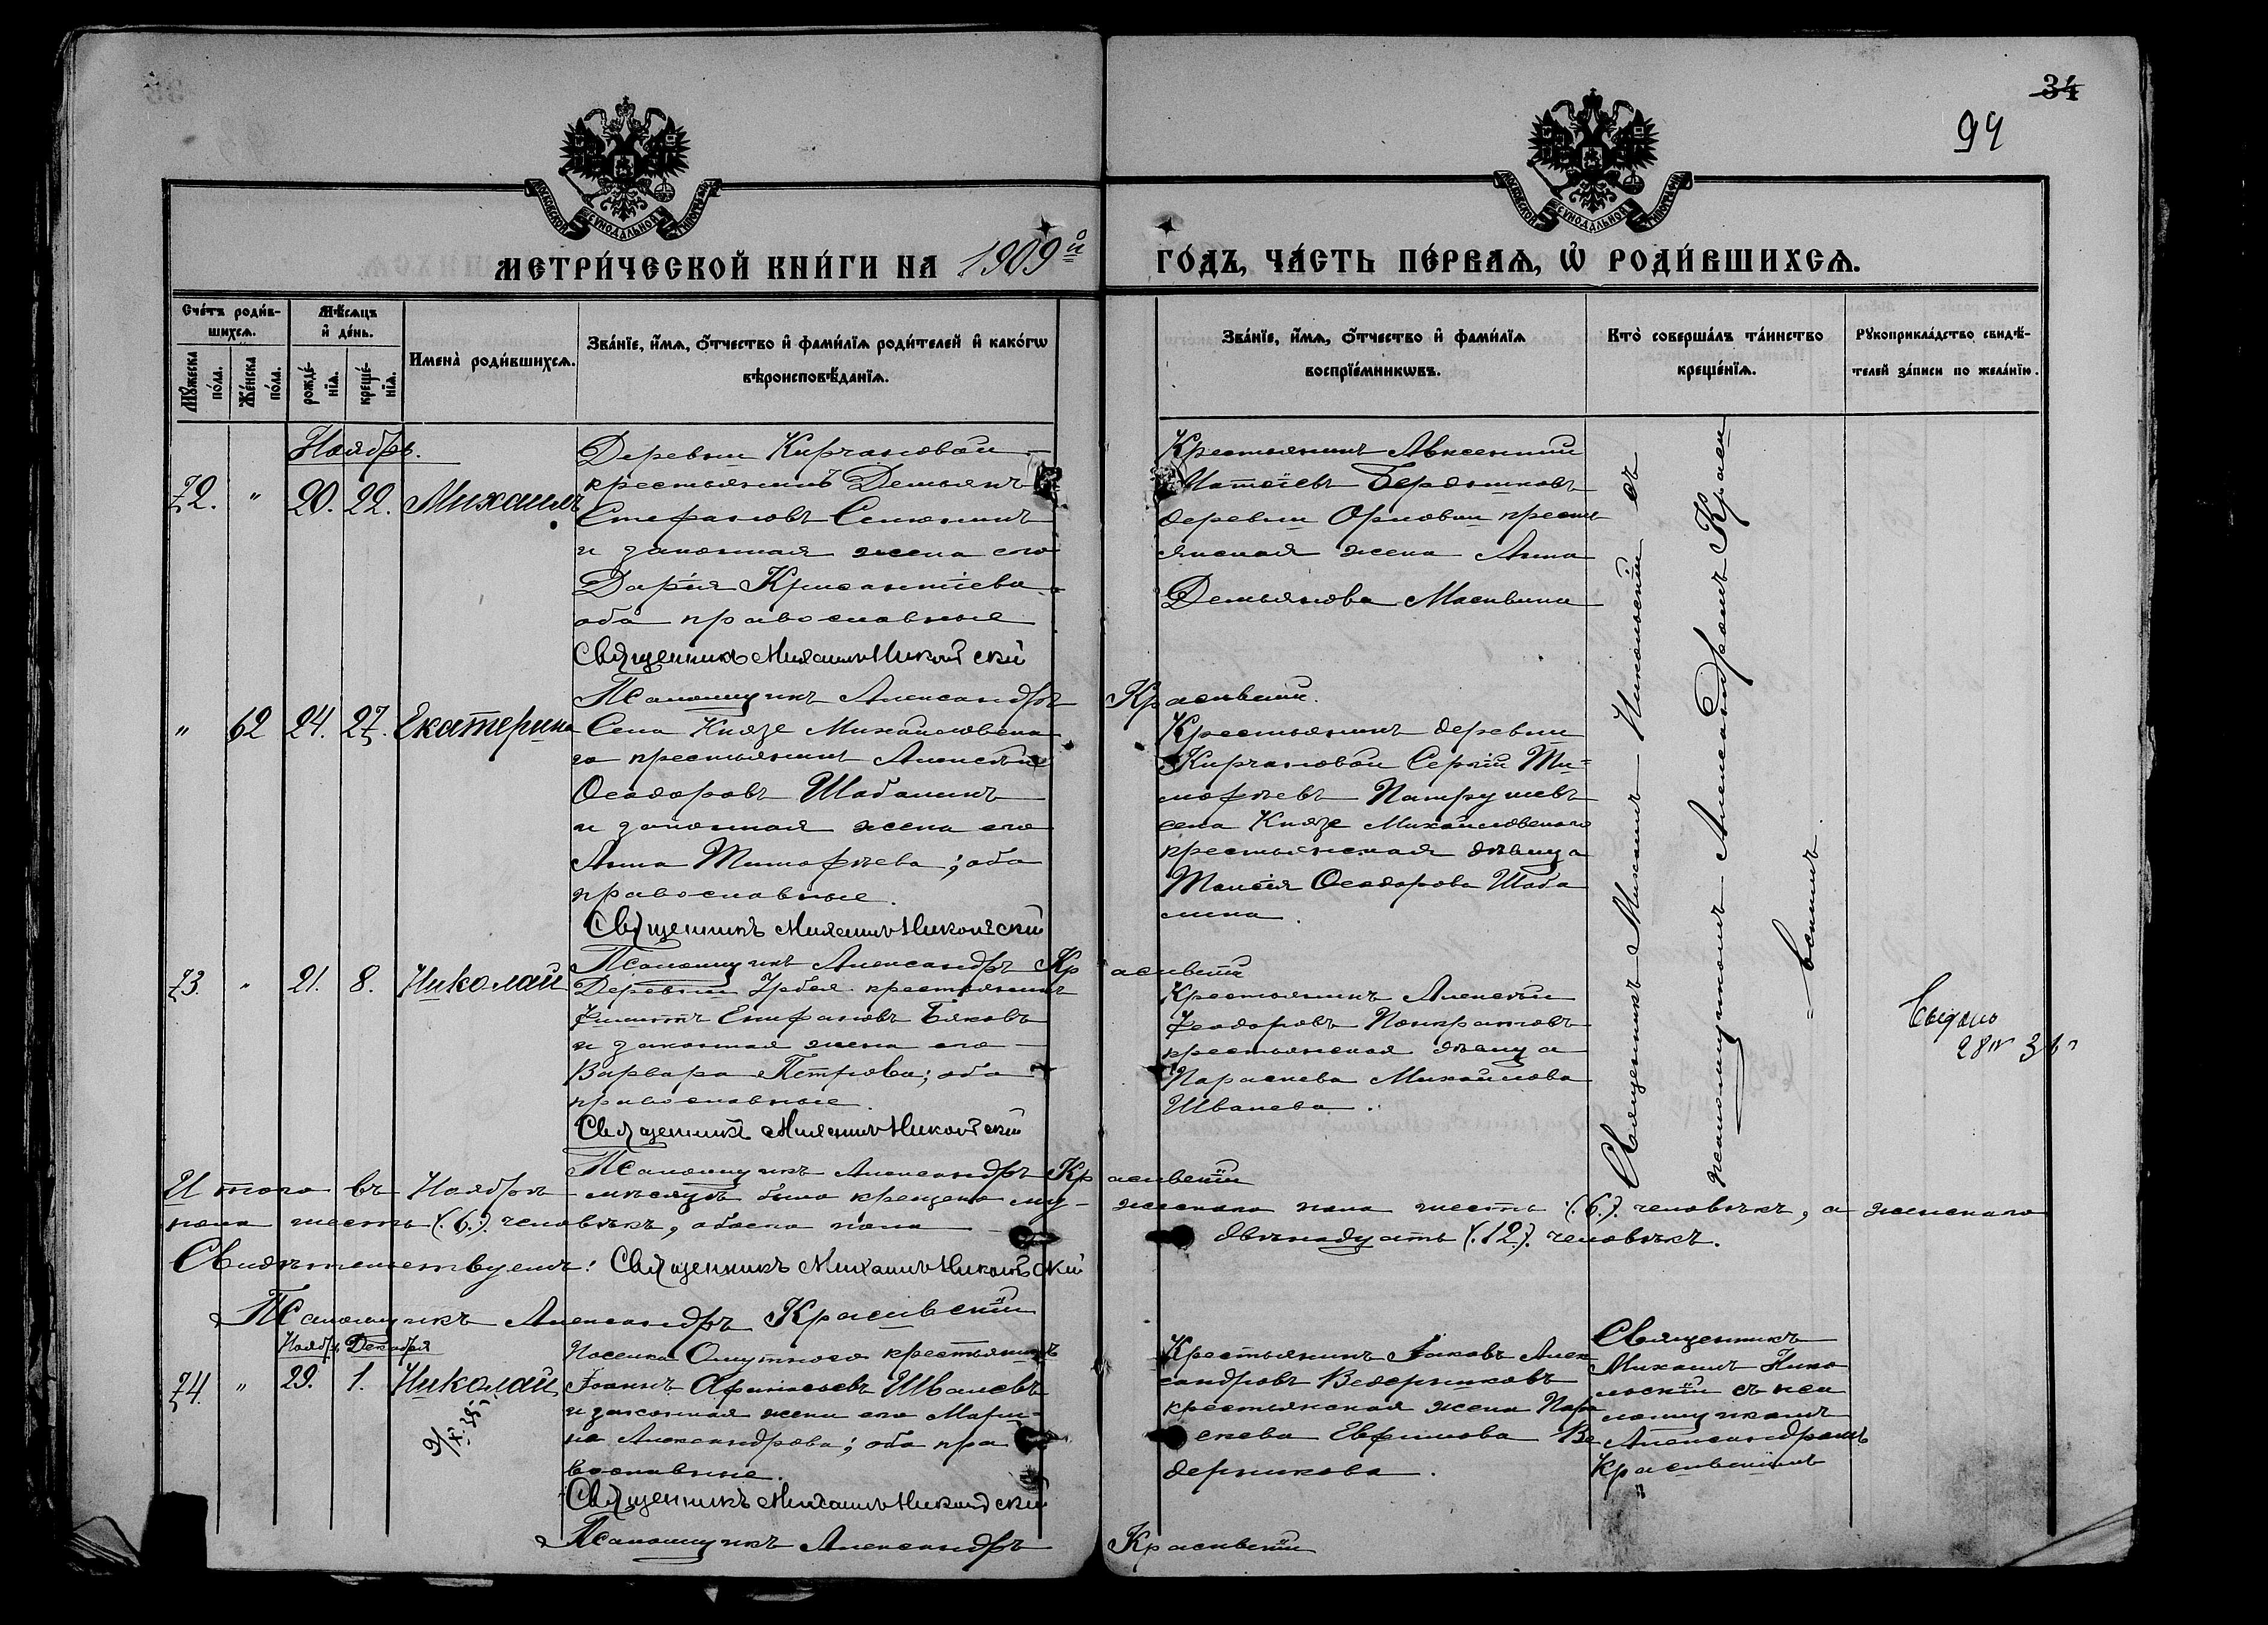 34
94
МОСКОВСКОЙ СѴНОДАЛЬНОЙ ТИПОГРАФІИ
МОСКОВСКОЙ СѴНОДАЛЬНОЙ ТИПОГРАФІИ
МЕТРИ́ЧЕСКОЙ КНИ́ГИ НА 1909й
ГО́ДЪ, ЧА́СТЬ ПЕ́РВАѦ, Ѡ҆ РОДИ́ВШИХСѦ.
Сче́тъ роди́в-
шихсѧ.
Мꙋ́жеска
по́ла.
Же́нска
по́ла.
Мѣ́сѧцъ
и҆ де́нь.
рожде́-
нїѧ.
креще́-
нїѧ.
Имена̀ роди́вшихсѧ.
Зва́нїе, и҆́мѧ, ѻ҆́тчество и҆ фами́лїѧ роди́телей и҆ како́гѡ
вѣроисповѣ́данїѧ.
Зва́нїе, и҆́мѧ, ѻ҆́тчество и҆ фами́лїѧ
воспрїе́мникѡвъ.
Кто̀ соверша́лъ та́инство
креще́нїѧ.
Рꙋкоприкла́дство свидѣ́-
телей за́писи по жела́нїю.
Ноябрь.
72. " 20. 22. Михаилъ
Деревни Кирчановой
крестьянинъ Демьянъ
Стефановъ Сенюнинъ
и законная жена его
Дарія Крисантіева
оба православные
Священникъ Михаилъ Никольский
Псаломщикъ Александръ Красивскій.
Крестьянинъ Авксентій
Матѳіевъ Бердниковъ
деревни Орловы кресть
янская жена Анна
Демьянова Масивина
" 62 24. 27. Екатерина
Села Князе Михайловска
го крестьянинъ Алексѣй
Ѳеодоровъ Шабалинъ
и законная жена его
Анна Тимофѣева; оба
православные.
Священникъ Михаилъ Никольский
Псаломщикъ Александръ Красивскій
Крестьянинъ деревни
Кирчановой Сергій Ти=
мофѣевъ Патрушевъ
села Князе Михайловскаго
крестьянская дѣвица
Таисія Ѳеодорова Шаба
лина.
73. " 21. 8. Николай
Деревни крестьянинъ
Филиппъ Епифановъ Бяковъ
и законная жена его
Варвара Петрова; оба
православные.
Священникъ Михаилъ Никольский
Псаломщикъ Александръ Красивскій
Крестьянинъ Алексѣй
Ѳеодоровъ Панкратовъ
крестьянская дѣвица
Параскева Михайлова
Швалева.
Священникъ Михаилъ Никольскій съ
псаломщикомъ Александромъ Краси
=вскимъ.
Выдано
28 IV 36 г
Итого въ Ноябрѣ мѣсяцѣ было крещено му-жескаго пола шесть (.6.). человѣкъ, а женскаго
пола шесть (.6.). человѣкъ, обоего пола двѣнадцать (.12.). человѣкъ.
Свидѣтельствуемъ: Священникъ Михаилъ Никольский
Псаломщикъ Александръ Красивскій
Нояб. Декабря
74. " 29. 1. Николай
Поселка Омутного крестьянинъ
Іоаннъ Афанасьевъ Швалевъ
и законная жена его Мари-
на Александрова; оба пра
вославные.
Священникъ Михаилъ Никольский
Псаломщикъ Александръ Красивскій
Крестьянинъ Іаковъ Алек
сандровъ Ведерниковъ
крестьянская жена Пара
скева Евфимова Ве
дерникова.
Священникъ
Михаилъ Нико
льскій съ пса
ломщикомъ
Александромъ
Красивскимъ